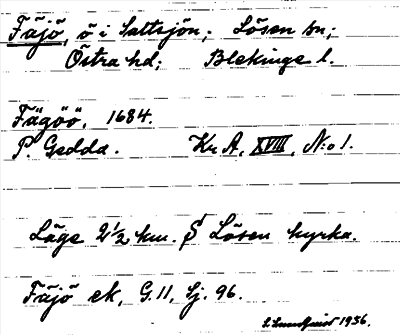 Fäjö, ö i Saltsjön; Lösen sn;
Östra hd; Blekinge l.
Fägöö, 1684.
P. Gedda. Kr. A, XVIII, N:o 1.
Läge 2 1/2 km. S Lösen kyrka.
Fäjö ek, G. 11, Sj. 96.
S. Lundqvist 1956.